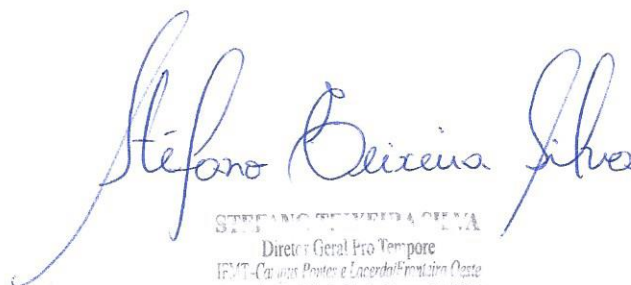 Stéfano Teixeira Silva
STEFANO TEIXEIRA SILVA
Diretor Geral Pro Tempore
IFMT-Campus Pontes e Lacerda/Fronteira Oeste